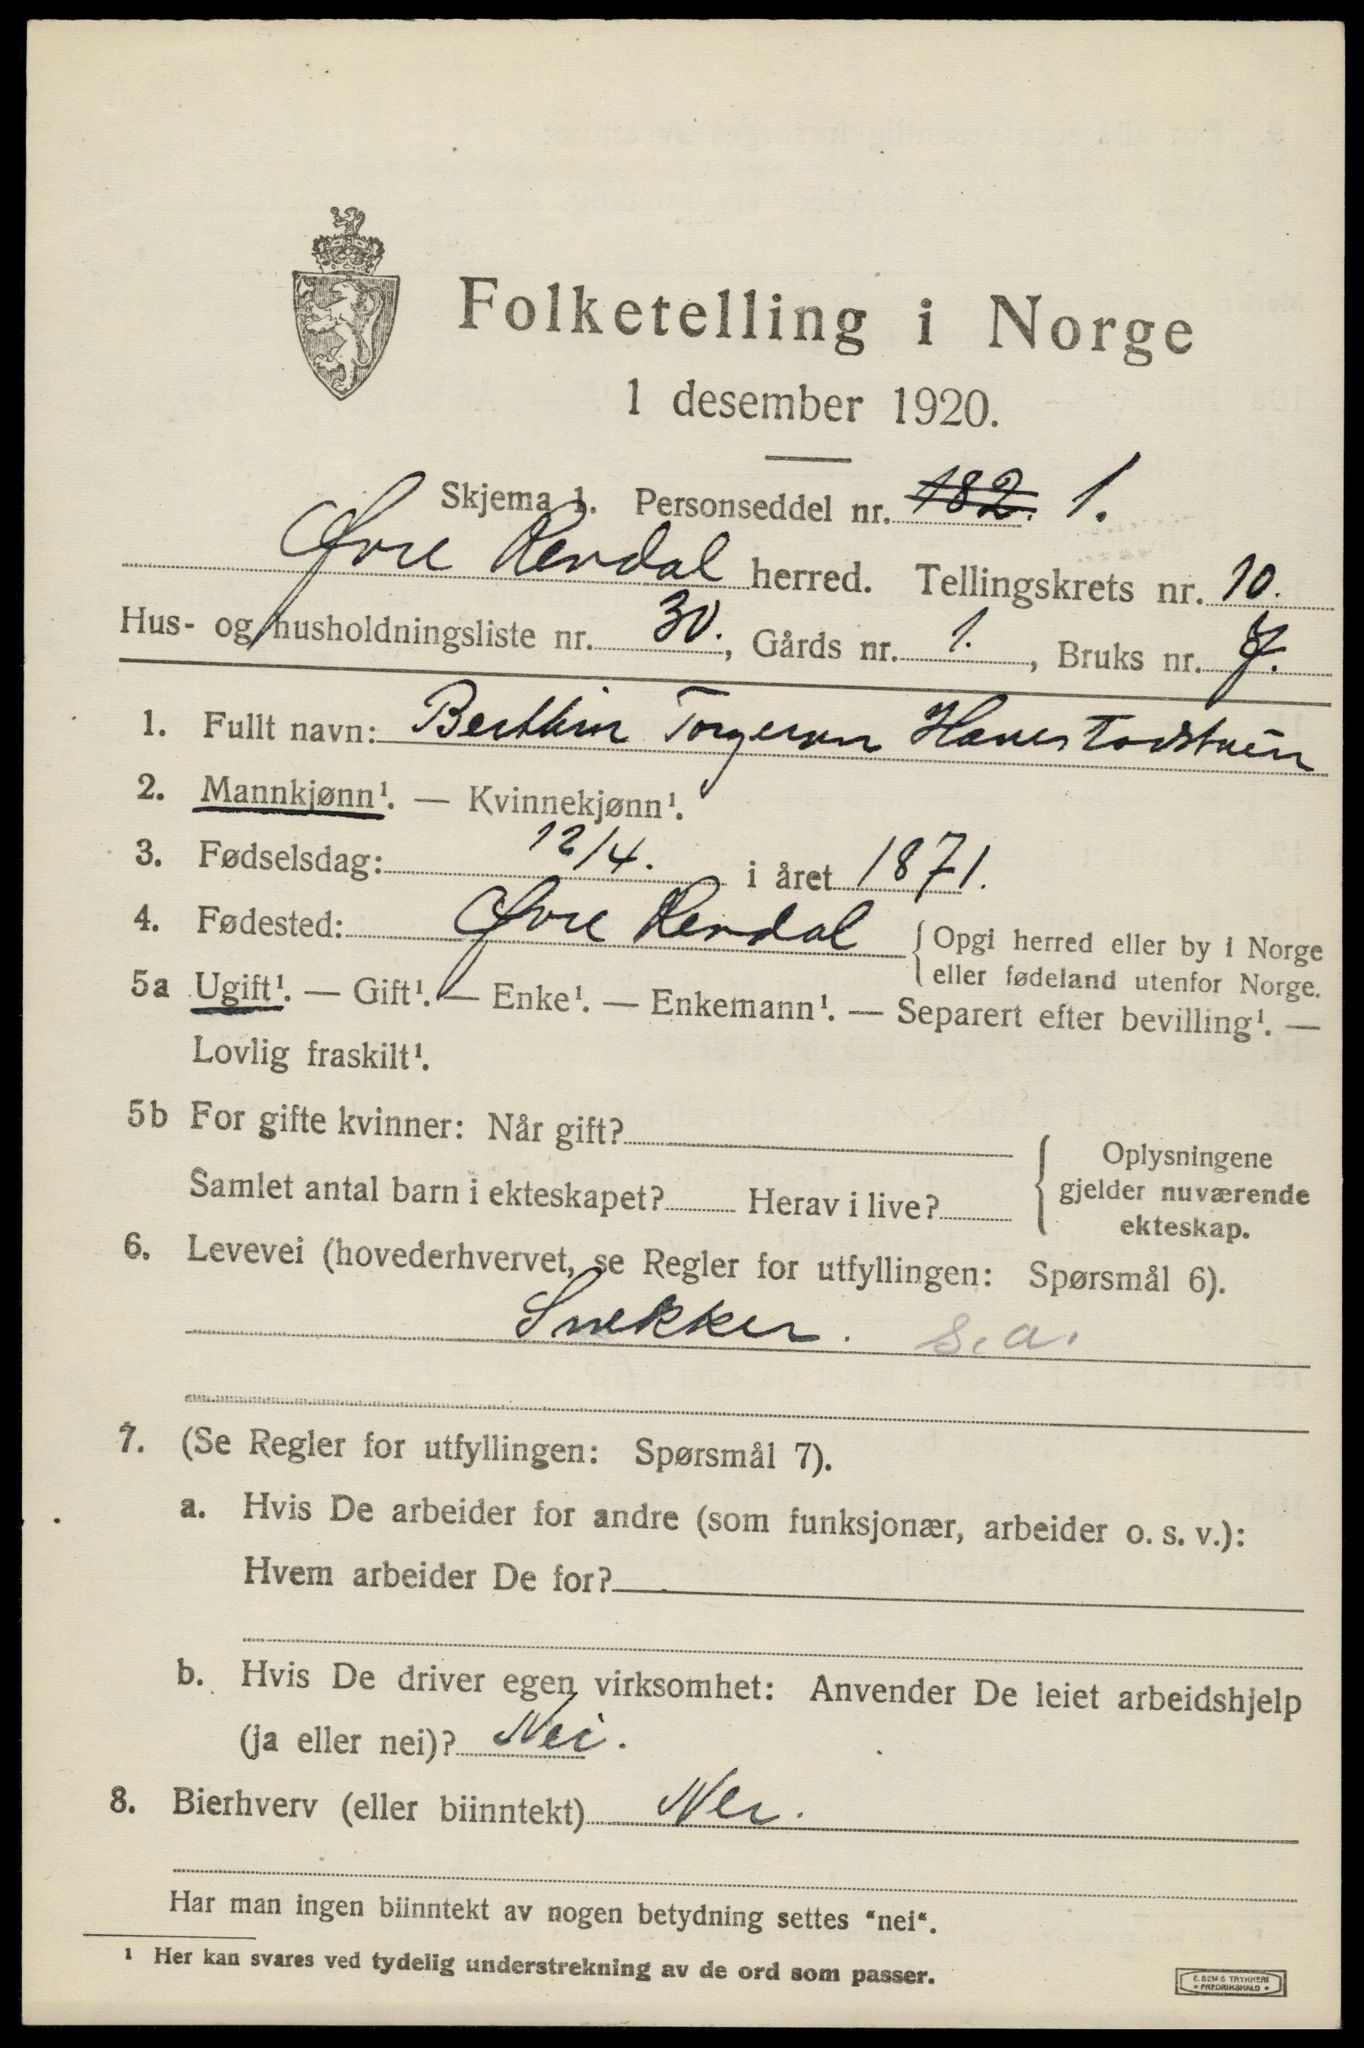 Folketelling i Norge
1 desember 1920.
Skjema 1. Personseddel nr. 182. 1.
Øvre Rendal herred. Tellingskrets nr. 10.
Hus- og husholdningsliste nr. 30., Gårds nr. 1., Bruks nr. 7.
1. Fullt navn: Torgersen Hanestadstuen
2. Mannkjønn¹. — Kvinnekjønn¹.
3. Fødselsdag: 12/4. i året 1871.
4. Fødested: Øvre Rendal { Opgi herred eller by i Norge
eller fødeland utenfor Norge.
5a Ugift¹. — Gift¹. — Enke¹. — Enkemann¹. — Separert efter bevilling¹. —
Lovlig fraskilt¹.
5b For gifte kvinner: Når gift?
Samlet antal barn i ekteskapet? Herav i live?
{ Oplysningene
gjelder nuværende
ekteskap.
6. Levevei (hovederhvervet, se Regler for utfyllingen: Spørsmål 6).
Snekker. s.a.
7. (Se Regler for utfyllingen: Spørsmål 7).
a. Hvis De arbeider for andre (som funksjonær, arbeider o. s. v.):
Hvem arbeider De for?
b. Hvis De driver egen virksomhet: Anvender De leiet arbeidshjelp
(ja eller nei)? Nei.
8. Bierhverv (eller biinntekt) Nei.
Har man ingen biinntekt av nogen betydning settes “nei“.
¹ Her kan svares ved tydelig understrekning av de ord som passer.
E. SEM'S TRYKKERI
• FREDRIKSHALD •